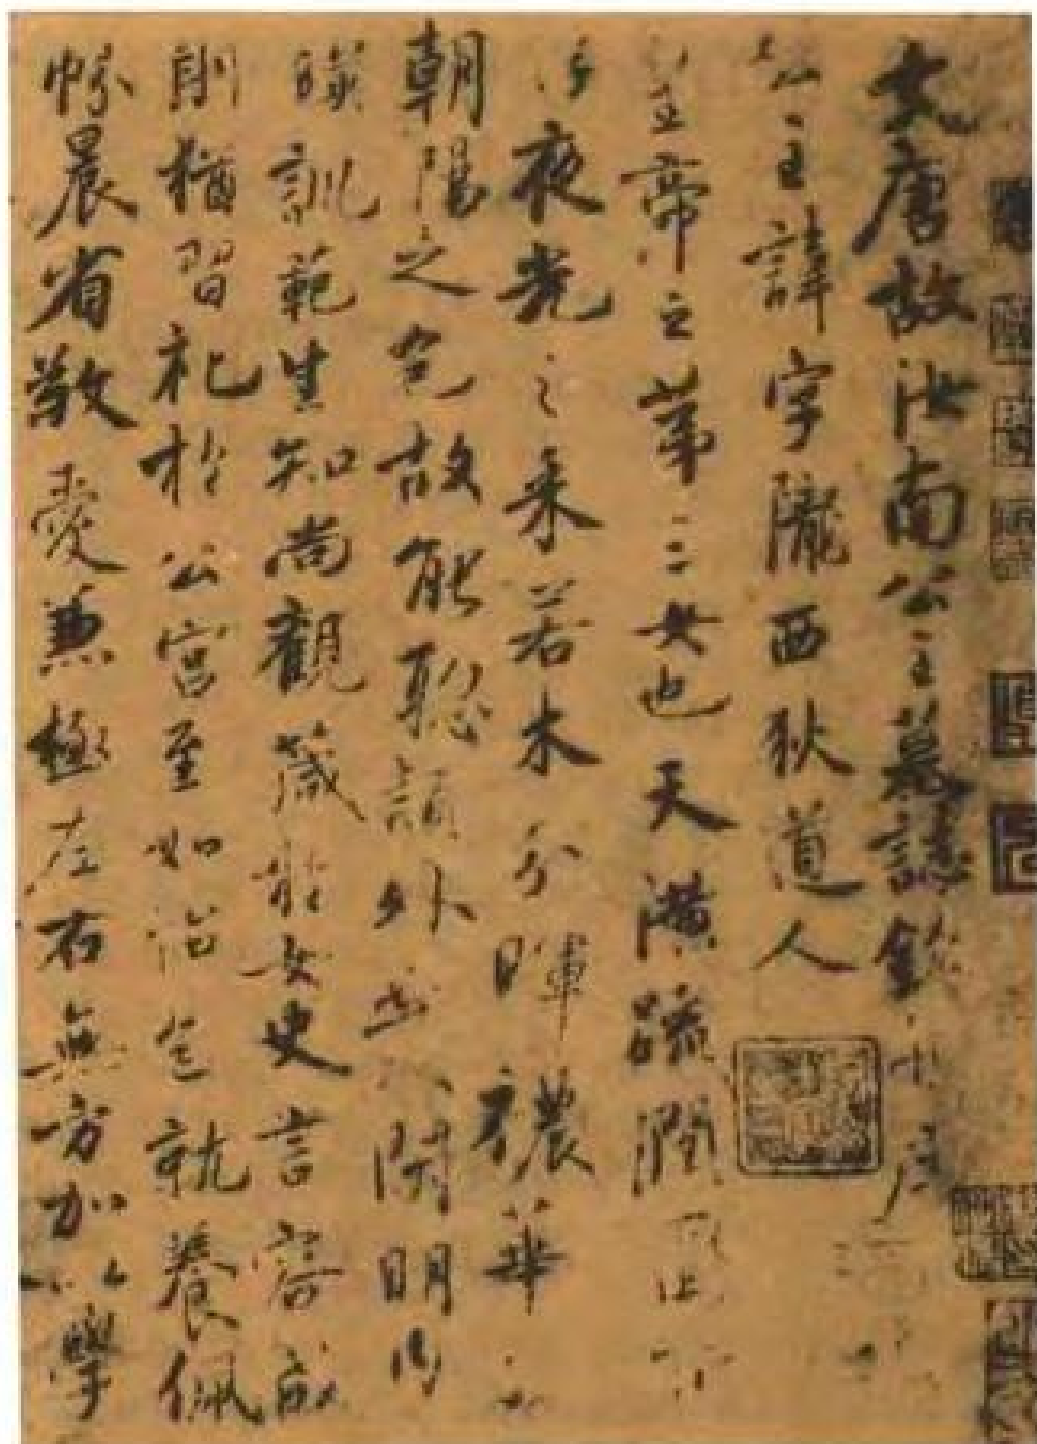 大唐故汝南公主墓誌銘并序
公主諱字隴西狄道人
皇帝之第三女也天潢疏潤
夜光之采若木分暉穠華
朝陽之色故能聰穎外出閑明內
暎訓範生知尚觀箴於女史言容成
則猶習礼於公宮至如怡色就養佩
帉晨省敬愛兼極左右無方加以學